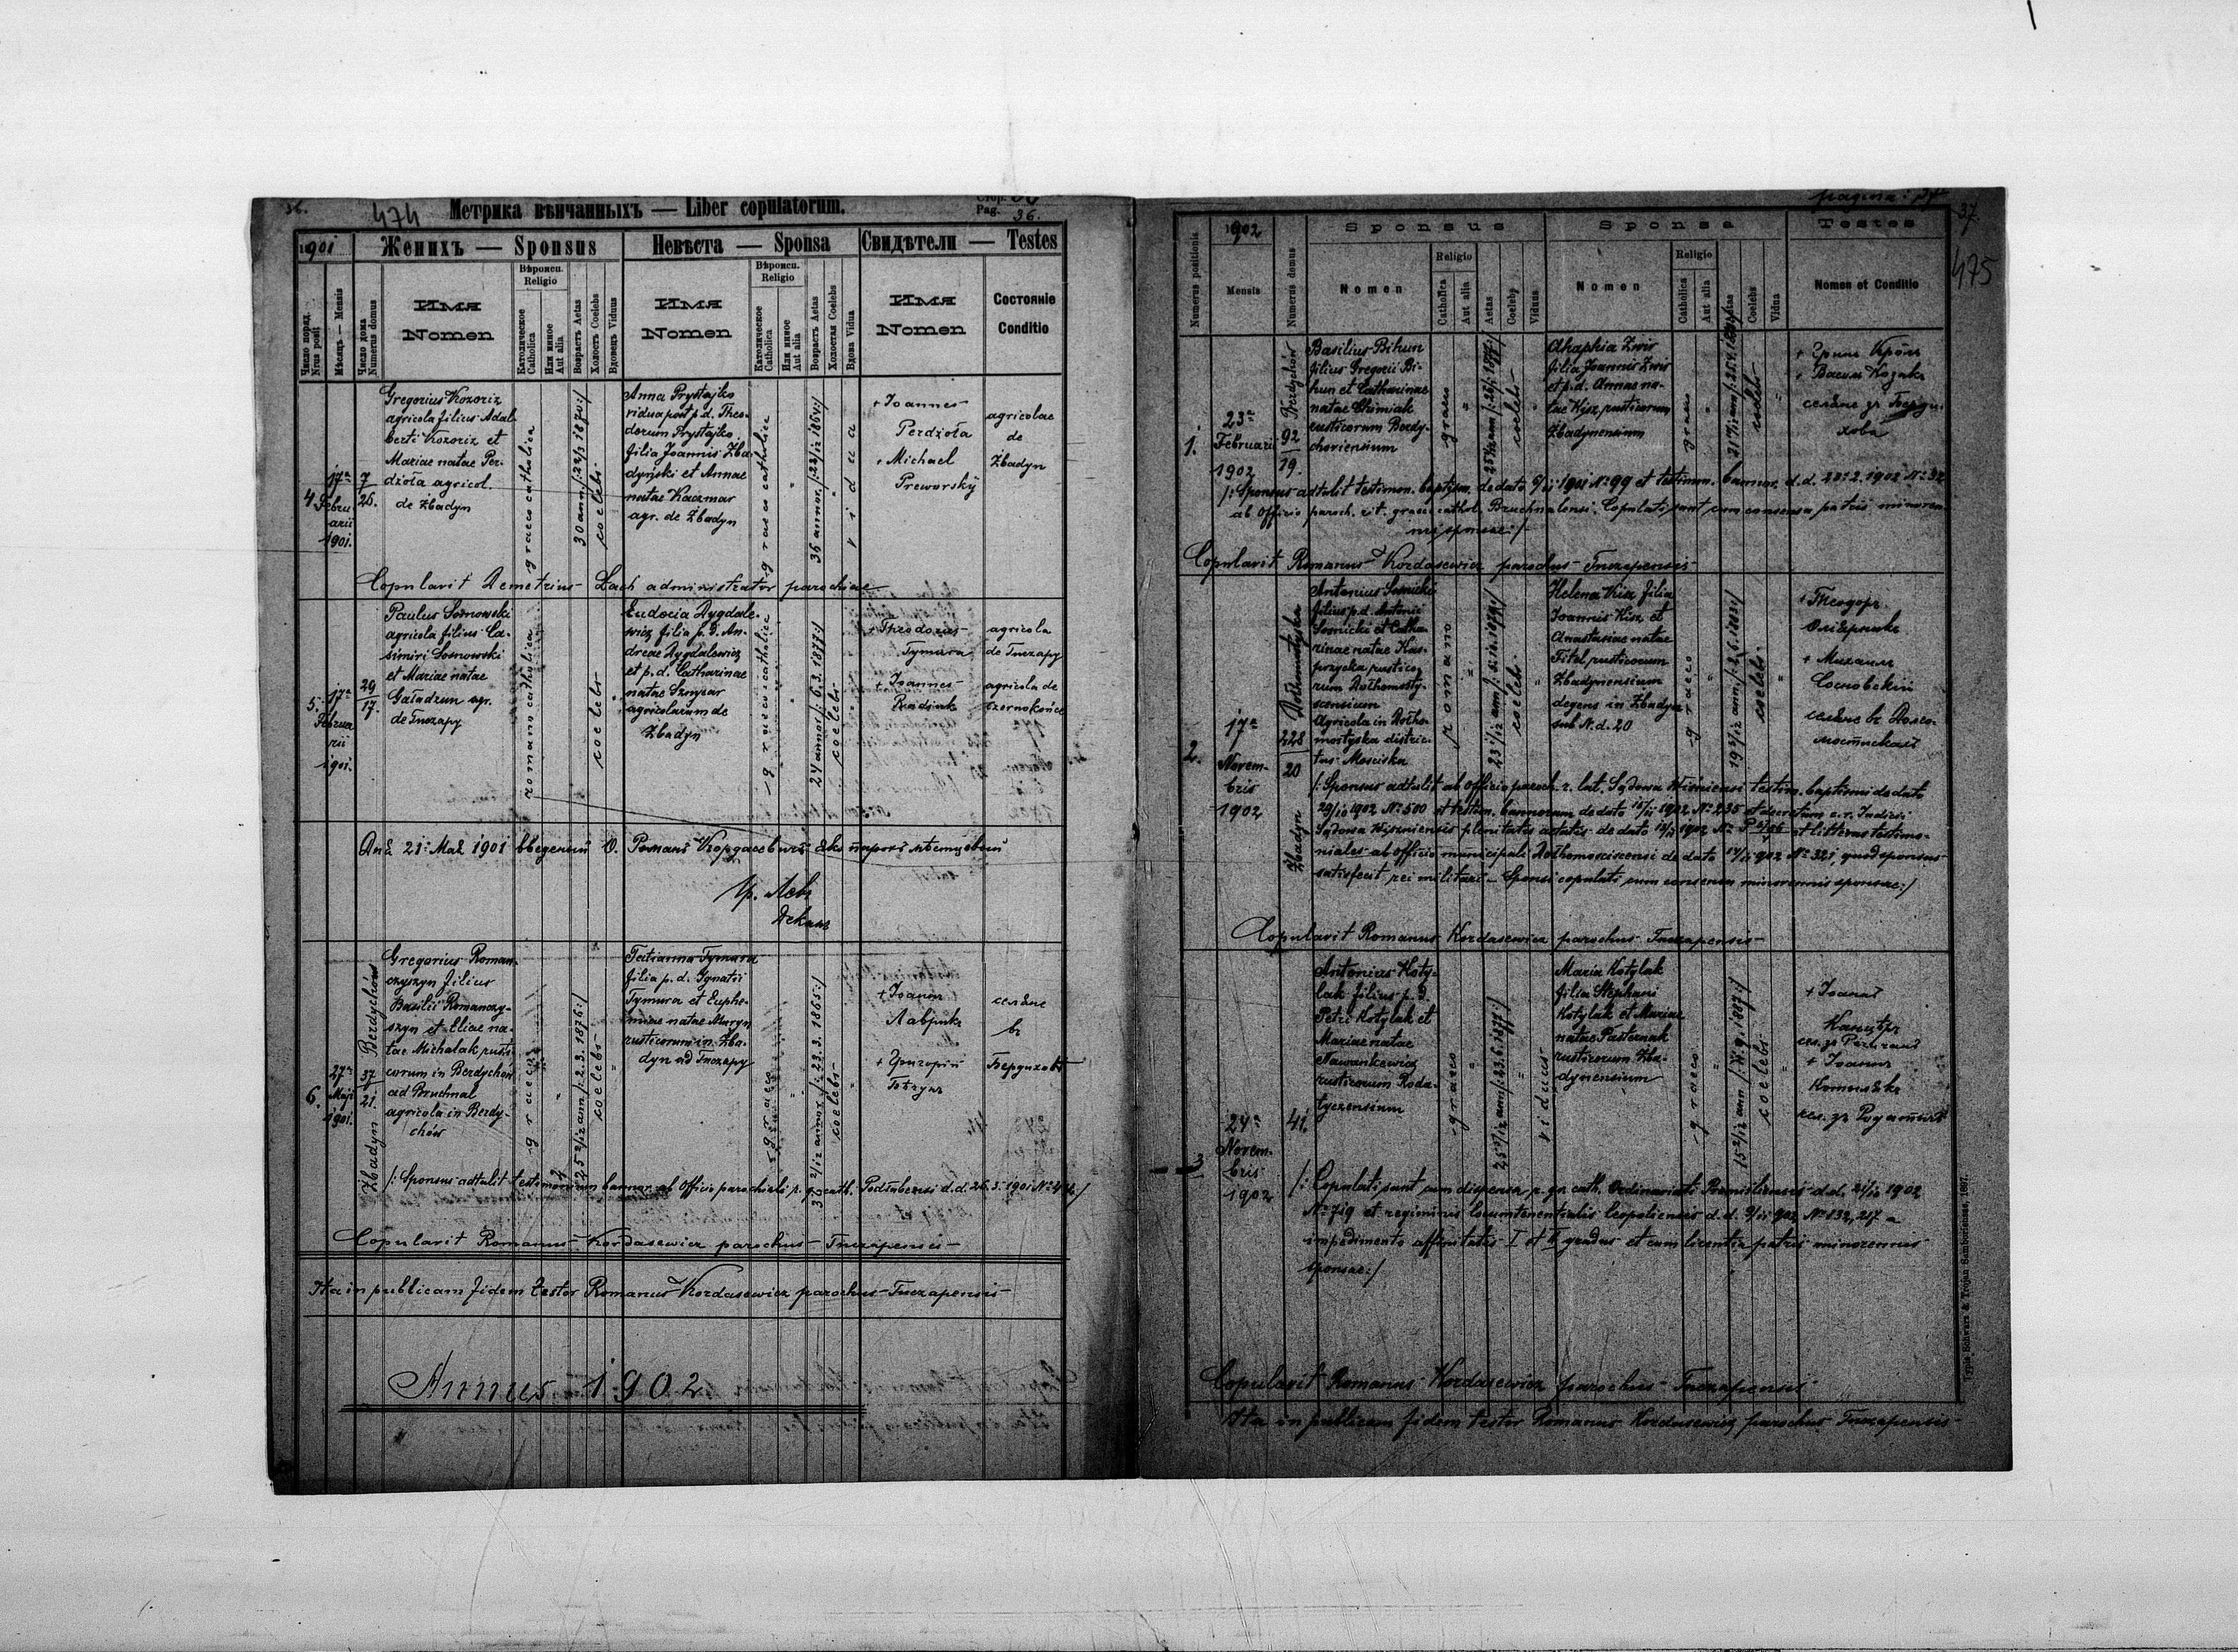 36.
474
Метрика вѣнчанныхъ — Liber copulatorum.
Стор.
Pag. 36.
1901
Женихъ — Sponsus
Невѣста — Sponsa
Свидѣтели — Testes
Число поряд.
Nrus posit
Мѣсяцъ — Mensis
Число дома
Numerus domus
Имя
Nomen
Вѣроисп.
Religio
Католическое
Catholica
Или иное
Aut alia
Возрастъ Aetas
Холостъ Coelebs
Вдовецъ Viduus
Имя
Nomen
Вѣроисп.
Religio
Католическое
Catholica
Или иное
Aut alia
Возрастъ Aetas
Холостая Coelebs
Вдова Vidua
Имя
Nomen
Состоянiе
Conditio
4.
17a
Febru
arii
1901.
7
26.
Gregorius Kozoriz
agricola filius Adal
berti Kozoriz et
Mariae natae Per-
dzoła agricol.
de Zbadyn
graeco catholica
30 ann /:22/3 1870:/
coelebs
Anna Prystajko
vidua post p.d. Theo-
dorum Prystajko
filia Joannis Zba-
dyński et Annae
natae Kaczmar
agr. de Zbadyn
graeco catholica
36 annor. /:22/12 1864:/
vidua
+ Joannes
Perdzoła
+ Michael
Preworskÿ
agricolae
de
Zbadyn
Copulavit Demetrius Lach administrator parochiae
5.
17a
Februa
rii
1901.
29
17.
Paulus Sosnowski
agricola filius Ca-
simiri Sosnowski
et Mariae natae
Gaładzun agr.
de Tuczapy
romano catholica
coelebs
Eudocia Dygdale-
wicz filia p. d. An-
dreae Dygdalewicz
et p.d. Catharinae
natae Sznyzar
agricolarum de
Zbadyn
graeco catholica
24 annor /: 6.3. 1877:/
coelebs
+ Theodorus
Tymura
+ Joannes
Rudiak
agricola
de Tuczapy
agricola de
Czernokońce
Днѣ 21: Маѣ 1901 введеный О. Романъ Кордасевичъ яко парохъ мѣстцевый
Декан
6.
27a
Maji
1901.
Zbadyn Berdychów
37
21.
Gregorius Roman-
czyszyn filius
Basilii Romanczy-
szyn et Eliae na-
tae Michalak rusti-
corum in Berdychów
ad Bruchnal
agricola in Berdy-
chów
graeco
25 2/12 ann /: 2.3. 1876:/
coelebs
Tatianna Tymura
filia p. d. Ignatii
Tymura et Euphe-
miae natae Muryn
rusticorum in Zba-
dyn ad Tuczapy
graeco
36 2/12 annor /: 23.3. 1865:/
coelebs
+ Іоаннъ
Лаврикъ
+ Григорій
селяне
въ
Бердихов
/: Sponsus adtulit testimonium bannor. ab Officio parochiali r. gr. cath. Podłubensi d.d. 26. 5. 1901 No
Copulavit Romanus Kordasewicz parochus Tuczapensis
Ita in publicam fidem testor Romanus Kordasewicz parochus Tuczapensis
Annus 1902
pagina: 37
37.
475
1902
Numerus positionis
Mensis
Numerus domus
Sponsus
Nomen
Religio
Catholica
Aut alia
Aetas
Coelebs
Viduus
Sponsa
Nomen
Religio
Catholica
Aut alia
Aetas
Coelebs
Vidua
Testes
Nomen et Conditio
1.
23a
Februarii
1902
Berdychów
92
19.
Basilius Bihun
filius Gregorii Bi-
hun et Catharinae
natae Chimiak
rusticorum Berdy-
choviensium
graeco
coelebs
Ahaphia Zwir
filia Joannis Zwir
et p.d. Annae na-
tae Kisz rusticorum
Zbadynensium
graeco
coelebs
+ Гринь Кроль
+ Васил Козакъ
селяне зъ Берди-
хова
/: Sponsus adtulit testimon. baptism. de dato 1901 No 99 et testimon. bannor. d.d. 23. 2. 1902 No 32
ab Officio paroch. rit. graeci cathol. Bruchnalensi. Copulati sunt cum consensu patris minoren-
nis sponsae:/
Copulavit Romanus Kordasewicz parochus Tuczapensis
2.
17a
Novem-
bris
1902
Zbadyn
228
20
Antonius Sosnicki
filius p.d. Antonii
Sosnicki et Catha-
rinae natae Kas-
przycka rustico
rum Dołhomosty-
scensium
Agricola in Dołho-
mostyska distric-
tus Mosciska
romano
coelebs
Helena Kisz filia
Joannis Kisz et
Anastasiae natae
Fitel rusticorum
Zbadynensium
degens in Zbadyn
sub N. d. 20
graeco
coelebs
+ Теодоръ
Олеарникъ
+ Михаилъ
Сосновскій
селяне въ Долго-
мостискахъ
/: Sponsus adtulit ab Officio paroch. r. lat. Sądowa Wiśniensi testim. baptismi de dato
29/10 1902 No 500 et testim. bannorum de dato 16/11 1902 No 235 et decretum c. r. Judicii
Sądowa Wiszniensis plenitatis aetatis de dato 1902 No et litteras testimo-
niales ab officio municipali Dołhomosciscensi de dato 14/11 902 No 321, quod sponsus
satisfecit rei militari – Sponsi copulati cum consensu minorennis sponsae:/
Copulavit Romanus Kordasewicz parochus Tuczapensis
3
24a
Novem-
bris
1902
41.
Antonius Koty-
lak filius p. d.
Petri Kotylak et
Mariae natae
Nawankewicz
rusticorum Roda-
tyczensium
graeco
25 5/12 ann /: 23.6.1877:/
viduus
Maria Kotylak
filia Stephani
Kotylak et Mariae
natae Pasternak
rusticorum Zba-
dynensium
graeco
coelebs
+ Іоаннъ
+ Іоаннъ
сел. зъ Родатичъ
/: Copulati sunt cum dispensa r. gr. cath. Ordinariati Premisliensis d.d. 21/10 1902
No 719 et regiminis locumtenentialis Leopoliensis d. d. 9/11 902 No 132,217 a
impedimento affinitatis I et II gradus et cum licentia patris minorennis
sponsae:/
Copulavit Romanus Kordasewicz parochus Tuczapensis
Ita in publicam fidem testor Romanus Kordasewicz parochus Tuczapensis
Typis Schwarz & Trojan Samboriensis, 1897.